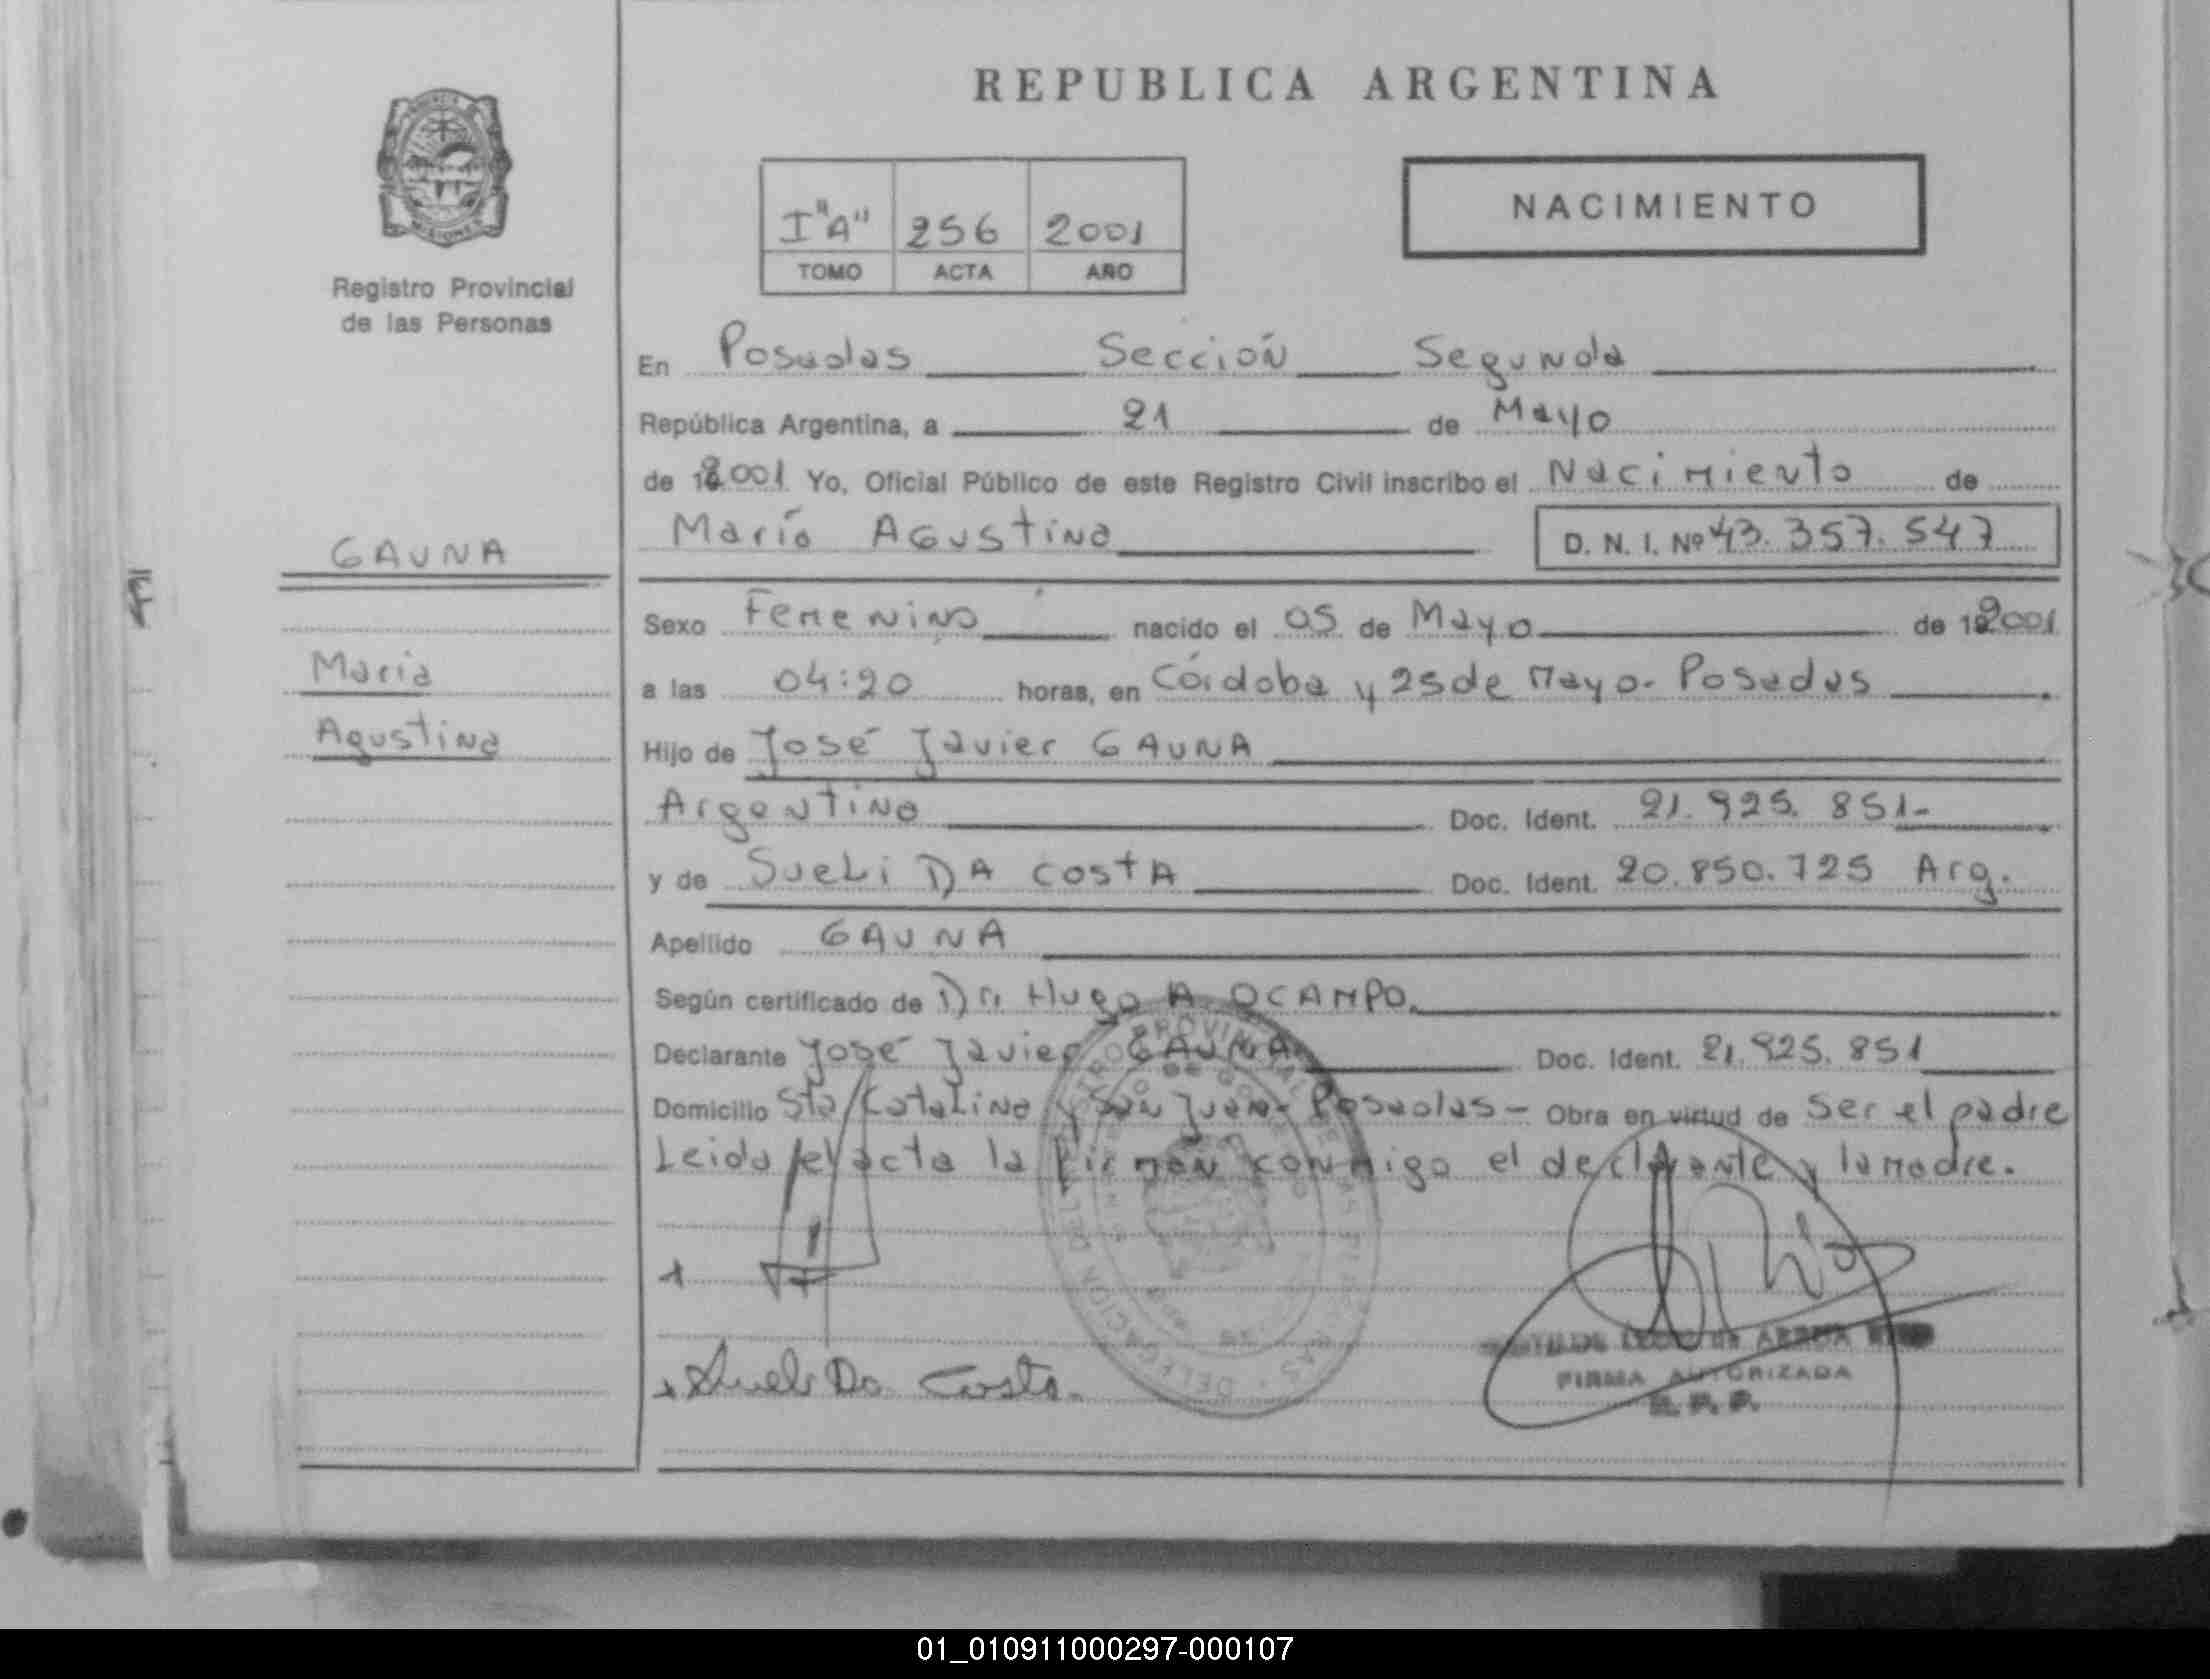 REPUBLICA ARGENTINA
NACIMIENTO
I"A" 256 2001
TOMO ACTA AÑO
Registro Provincial
de las Personas
MISIONES
En Posadas Sección Segunda
República Argentina, a 21 de Mayo
de 2001 Yo, Oficial Público de este Registro Civil inscribo el Nacimiento de
María Agustina D. N. I. Nº 43.357.547
GAUNA
Sexo Femenino nacido el 05 de Mayo de 2001
María
a las 04:20 horas, en Córdoba y 25 de Mayo. Posadas
Agustina
Hijo de José Javier GAUNA
Argentino Doc. Ident. 21.925.851-
y de Sueli DA COSTA Doc. Ident. 20.850.725 Arg.
Apellido GAUNA
Según certificado de Dr. Hugo A. OCAMPO.
Declarante José Javier GAUNA Doc. Ident. 21.925.851
Domicilio Sta Catalina y San Juan- Posadas- Obra en virtud de Ser el padre
Leida el acta la firman conmigo el declarante y la madre.
Sueli Da Costa.
FIRMA AUTORIZADA
R. P. P.
01_010911000297-000107